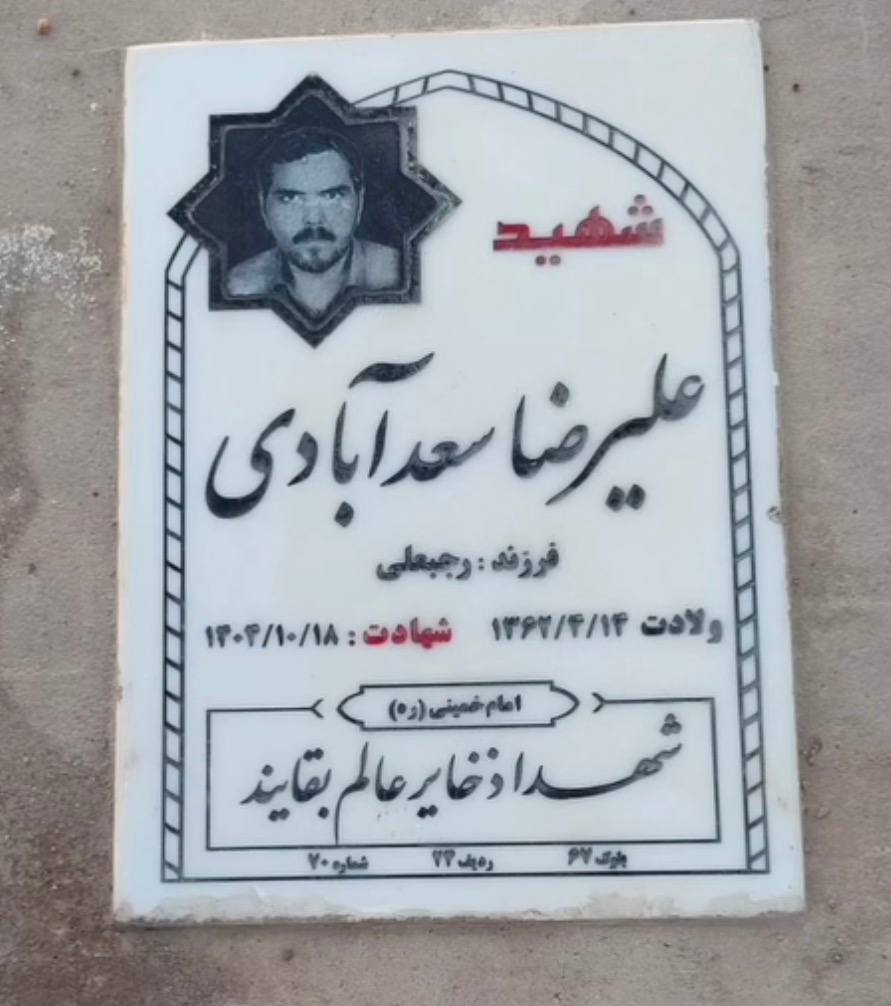 شهید
علیرضا سعدآبادی
فرزند : رجبعلی
ولادت ۱۳۶۲/۴/۱۴ شهادت : ۱۴۰۴/۱۰/۱۸
امام خمینی (ره)
شهدا ذخایر عالم بقایند
بلوک ۶۷ ردیف ۲۳ شماره ۷۰